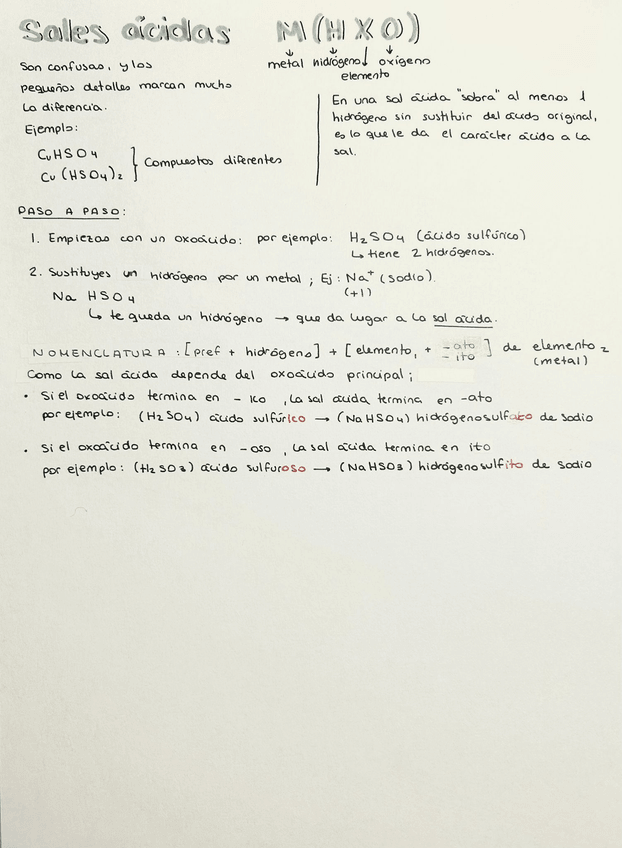 Sales ácidas M(HXO)
metal hidrógeno oxígeno
elemento
Son confusas, y los
pequeños detalles marcan mucho
la diferencia.
Ejemplo:
CuHSO4
Cu(HSO4)2
Compuestos diferentes
En una sal ácida "sobra" al menos 1
hidrógeno sin sustituir del ácido original,
es lo que le da el carácter ácido a la
sal.
PASO A PASO:
1. Empiezas con un oxoácido: por ejemplo: H2SO4 (ácido sulfúrico)
↳ tiene 2 hidrógenos.
2. Sustituyes un hidrógeno por un metal; Ej: Na+ (sodio).
(+1)
Na HSO4
↳ te queda un hidrógeno → que da lugar a la sal ácida.
NOMENCLATURA: [pref + hidrógeno] + [elemento1 + -ato
-ito] de elemento2
(metal)
Como la sal ácida depende del oxoácido principal;
• Si el oxoácido termina en -ico, la sal ácida termina en -ato
por ejemplo: (H2SO4) ácido sulfúrico → (NaHSO4) hidrógenosulfato de sodio
• Si el oxoácido termina en -oso, la sal ácida termina en ito
por ejemplo: (H2SO3) ácido sulfuroso → (NaHSO3) hidrógenosulfito de sodio